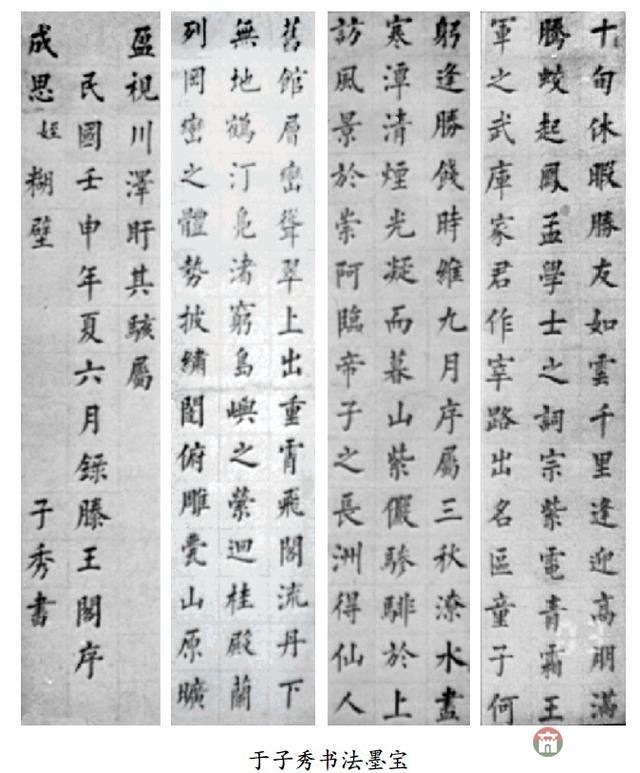 十旬休暇勝友如雲千里逢迎高朋滿
騰蛟起鳳孟學士之詞宗紫電青霜王
軍之武庫家君作宰路出名區童子何
躬逢勝餞時維九月序屬三秋潦水盡
寒潭清煙光凝而暮山紫儼驂騑於上
訪風景於崇阿臨帝子之長洲得仙人
舊館層巒聳翠上出重霄飛閣流丹下
無地鶴汀鳧渚窮島嶼之縈迴桂殿蘭
列岡巒之體勢披繡闥俯雕甍山原曠
盈視川澤盱其駭屬
民國壬申年夏六月錄滕王閣序
成思姪糊壁 子秀書
于子秀书法墨宝